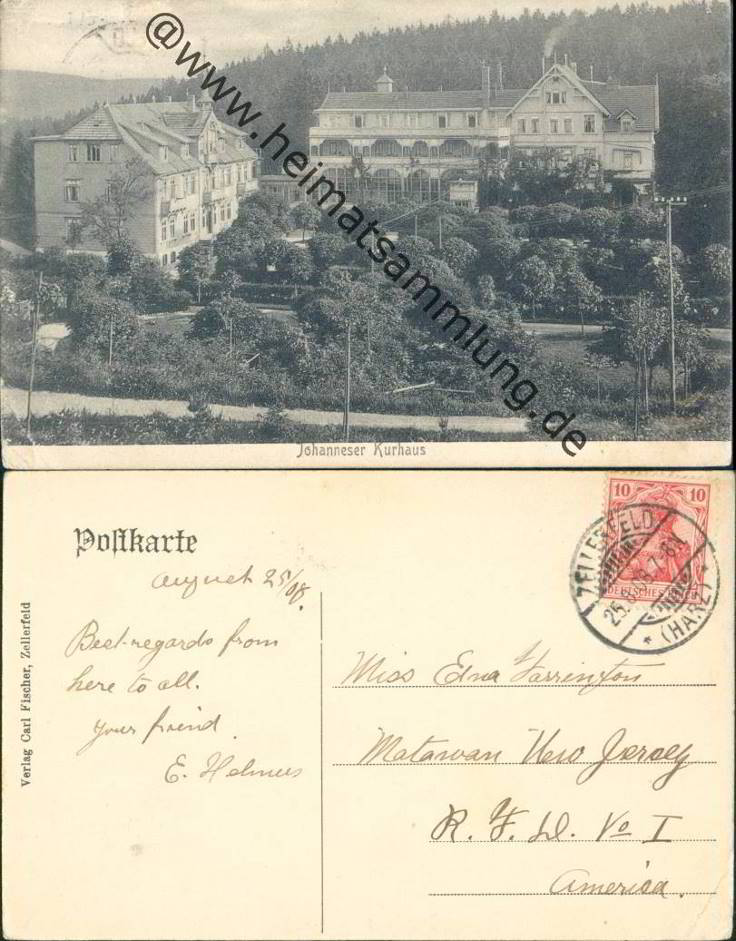 @www.heimatsammlung.de
Johanneser Kurhaus
Postkarte
August 25/08.
Best-regards from
here to all.
Your friend
E. Helmers
Verlag Carl Fischer, Zellerfeld
10 10
DEUTSCHES REICH
ZELLERFELD
25.8.08.7-8V.
* (HARZ) *
Miss Edna Farrington
Matawan New Jersey
R. F. D. No I
America.